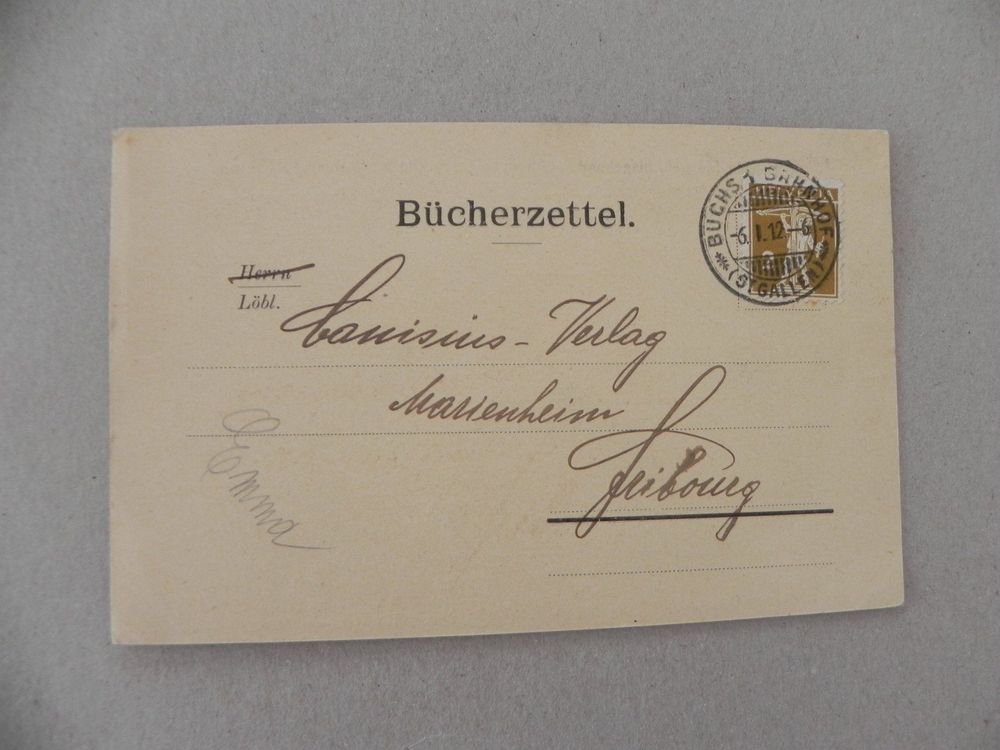 Bücherzettel.
BUCHS 1 BAHNHOF
-6.I.12.-6
(ST GALLEN)
Herrn
Löbl.
Canisius-Verlag
Marienheim
Fribourg
Emma